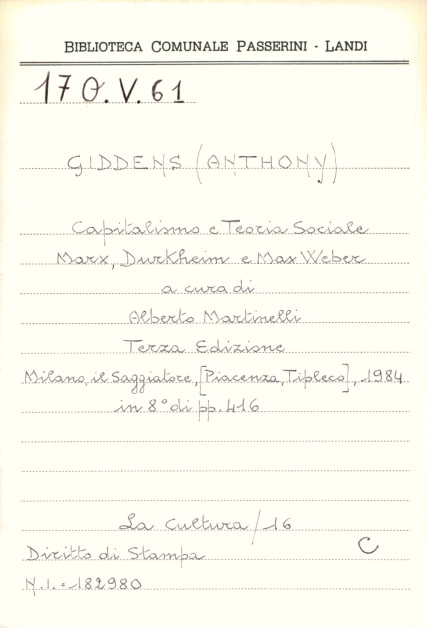 BIBLIOTECA COMUNALE PASSERINI - LANDI
170.V.61
GIDDENS (ANTHONY)
Capitalismo e Teoria Sociale
Marx, Durkheim e Max Weber
a cura di
Alberto Martinelli
Terza Edizione
Milano, il Saggiatore, [Piacenza, Tipleco], 1984
in 8° di pp. 416
La Cultura / 16
C
Diritto di Stampa
N.I. = 182980